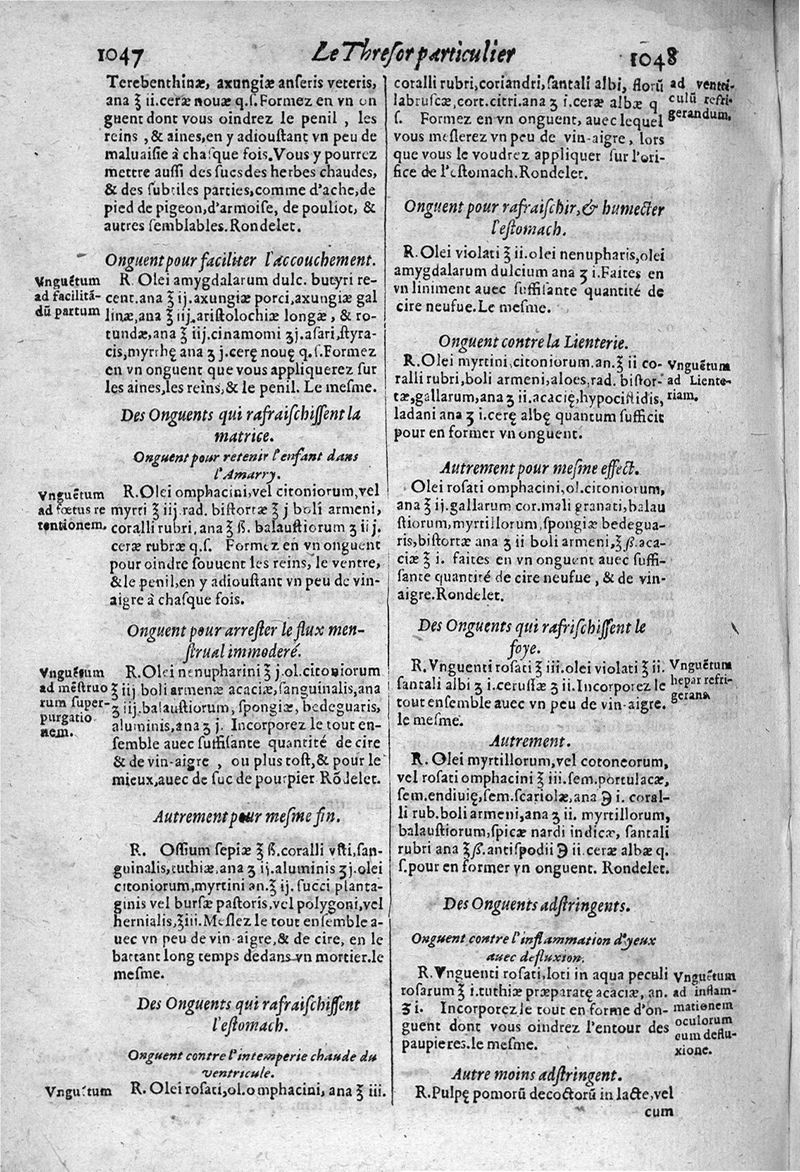 1047
Le Thresor particulier
1048
Terebenthinæ, axungiæ anseris veteris,
ana ʒ ii.ceræ nouæ q.ſ.Formez en vn on
guent dont vous oindrez le penil , les
reins , & aines, en y adiouſtant vn peu de
maluaiſie à chaſque fois.Vous y pourrez
mettre auſſi des ſucs des herbes chaudes,
& des ſubtiles parties, comme d'ache, de
pied de pigeon, d'armoiſe, de pouliot, &
autres ſemblables. Rondelet.
Onguent pour faciliter l'accouchement.
Vnguẽtum
ad facilitã-
dũ partum
R. Olei amygdalarum dulc. butyri re-
cent.ana ℥ ij.axungiæ porci, axungiæ gal
linæ,ana ℥ iij.ariſtolochiæ longæ, & ro-
tundæ,ana ʒ iij.cinamomi ʒj.aſari,ſtyra-
cis,myrrhę ana ʒ j.cerę nouę q.ſ.Formez
en vn onguent que vous appliquerez ſur
les aines,les reins,& le penil. Le meſme.
Des Onguents qui rafraiſchiſſent la
matrice.
Onguent pour retenir l'enfant dans
l'Amarry.
Vnguẽtum
ad fœtus re
tentionem.
R.Olei omphacini,vel citoniorum,vel
myrti ℥ iij.rad. biſtortæ ℥ j boli armeni,
coralli rubri, ana ℥ ß. balauſtiorum ʒ iij.
ceræ rubræ q.ſ. Formez en vn onguent
pour oindre ſouuent les reins, le ventre,
& le penil,en y adiouſtant vn peu de vin-
aigre à chaſque fois.
Onguent pour arreſter le flux men-
ſtrual immoderé.
Vnguẽtum
ad mẽſtruo
rum ſuper-
purgatio
nem.
R.Olei nenupharini ℥ j.ol.citoniorum
℥ iij.boli armenæ acaciæ,ſanguinalis,ana
ʒ iij.balauſtiorum, ſpongiæ, bedeguaris,
aluminis,ana ʒ j. Incorporez le tout en-
ſemble auec ſuffiſante quantité de cire
& de vin-aigre , ou plus toſt,& pour le
mieux,auec de ſuc de pourpier Rõdelet.
Autrement pour meſme fin.
R. Oſſium ſepiæ ℥ ß.coralli vſti,ſan-
guinalis,tuthiæ.ana ʒ ij.aluminis ʒj.olei
citoniorum,myrtini an.℥ ij. ſucci planta-
ginis vel burſæ paſtoris,vel polygoni,vel
hernialis,℥iii.Meſlez le tout enſemble a-
uec vn peu de vin-aigre,& de cire, en le
battant long temps dedans vn mortier.le
meſme.
Des Onguents qui rafraiſchiſſent
l'eſtomach.
Onguent contre l'intemperie chaude du
ventricule.
Vnguẽtum
R. Olei roſati,ol.omphacini, ana ℥ iii.
coralli rubri,coriandri,ſantali albi, florũ
labruſcæ,cort.citri.ana ʒ i.ceræ albæ q
ſ. Formez en vn onguent, auec lequel
vous meſlerez vn peu de vin-aigre, lors
que vous le voudrez appliquer ſur l'ori-
fice de l'eſtomach.Rondeler.
ad ventri-
culũ refri-
gerandum.
Onguent pour rafraiſchir,& humecter
l'eſtomach.
R. Olei violati ℥ ii.olei nenupharis,olei
amygdalarum dulcium ana ℥ i.Faites en
vn liniment auec ſuffiſante quantité de
cire neufue.Le meſme.
Onguent contre la Lienterie.
R. Olei myrtini,citoniorum.an.℥ ii co-
ralli rubri,boli armeni,aloes,rad. biſtor-
tæ,gallarum,ana ʒ ii.acacię,hypociſtidis,
ladani ana ʒ i.cerę albę quantum ſufficit
pour en former vn onguent.
Vnguẽtum
ad Liente-
riam.
Autrement pour meſme effect.
Olei roſati omphacini,ol.citoniorum,
ana ℥ ij.gallarum cor.mali granati,balau
ſtiorum,myrtillorum,ſpongiæ bedegua-
ris,biſtortæ ana ʒ ii boli armeni,℥ß.aca-
ciæ ℥ i. faites en vn onguent auec ſuffi-
ſante quantité de cire neufue , & de vin-
aigre.Rondelet.
Des Onguents qui rafriſchiſſent le
foye.
R.Vnguenti roſati ℥ iii.olei violati ℥ ii.
ſantali albi ʒ i.ceruſſæ ʒ ii.Incorporez le
tout enſemble auec vn peu de vin-aigre.
le meſme.
Vnguẽtum
hepar refri-
gerans
Autrement.
R. Olei myrtillorum,vel cotoneorum,
vel roſati omphacini ℥ iii.ſem.portulacæ,
ſem.endiuię,ſem.ſcariolæ,ana ℈ i. coral-
li rub.boli armeni,ana ʒ ii. myrtillorum,
balauſtiorum,ſpicæ nardi indicæ, ſantali
rubri ana ʒß.antiſpodii ℈ ii.ceræ albæ q.
ſ.pour en former vn onguent. Rondelet.
Des Onguents adſtringents.
Onguent contre l'inflammation d'yeux
auec defluxion.
R.Vnguenti roſati,loti in aqua peculi
roſarum ℥ i.tuthiæ præparatę acaciæ, an.
ʒ i. Incorporez le tout en forme d'on-
guent dont vous oindrez l'entour des
paupieres.le meſme.
Vnguẽtum
ad inflam-
mationem
oculorum
cum deflu-
xione.
Autre moins adſtringent.
R.Pulpę pomorũ decoctorũ in lacte,vel
cum